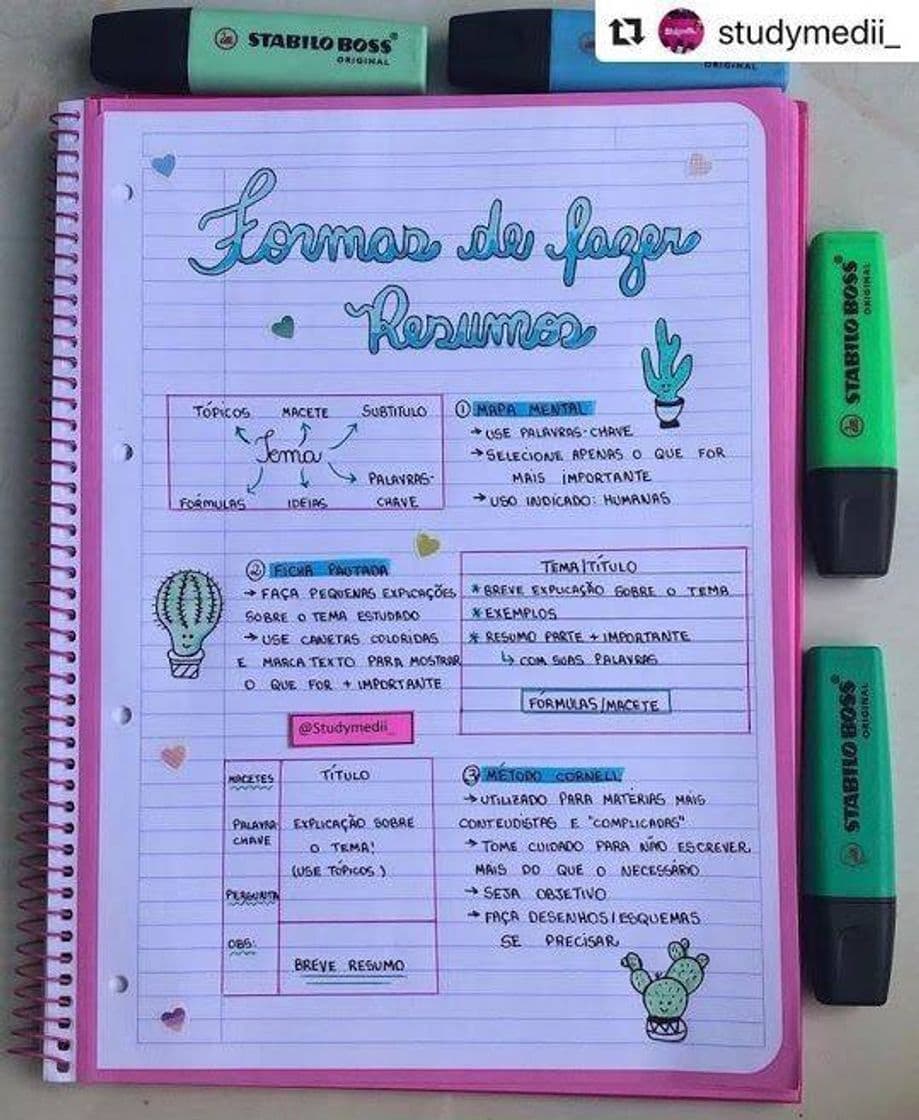 STABILO BOSS
ORIGINAL
ORIGINAL
studymedii_
Formas de fazer
Resumos
TÓPICOS MACETE SUBTITULO
Tema
PALAVRAS-
CHAVE
FÓRMULAS IDEIAS
1 MAPA MENTAL
→ USE PALAVRAS-CHAVE
→ SELECIONE APENAS O QUE FOR
MAIS IMPORTANTE
→ USO INDICADO: HUMANAS
2 FICHA PAUTADA
→ FAÇA PEQUENAS EXPLICAÇÕES
SOBRE O TEMA ESTUDADO
→ USE CANETAS COLORIDAS
E MARCA TEXTO PARA MOSTRAR
O QUE FOR + IMPORTANTE
TEMA/TÍTULO
* BREVE EXPLICAÇÃO SOBRE O TEMA
* EXEMPLOS
* RESUMO PARTE + IMPORTANTE
↳ COM SUAS PALAVRAS
FÓRMULAS/MACETE
@Studymedii_
MACETES
PALAVRA-
CHAVE
PERGUNTA
OBS:
TÍTULO
EXPLICAÇÃO SOBRE
O TEMA!
(USE TÓPICOS)
BREVE RESUMO
3 MÉTODO CORNELL
→ UTILIZADO PARA MATÉRIAS MAIS
CONTEUDISTAS E "COMPLICADAS"
→ TOME CUIDADO PARA NÃO ESCREVER
MAIS DO QUE O NECESSÁRIO
→ SEJA OBJETIVO
→ FAÇA DESENHOS/ESQUEMAS
SE PRECISAR
STABILO BOSS
ORIGINAL
STABILO BOSS
ORIGINAL